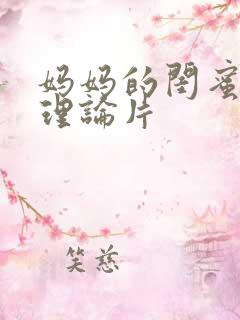 妈妈的閏蜜
理論片
笑慈